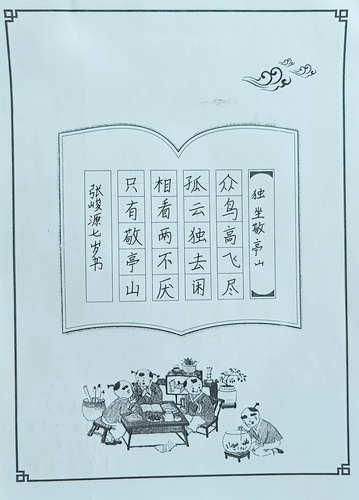 独坐敬亭山
众鸟高飞尽
孤云独去闲
相看两不厌
只有敬亭山
张峻源七岁书